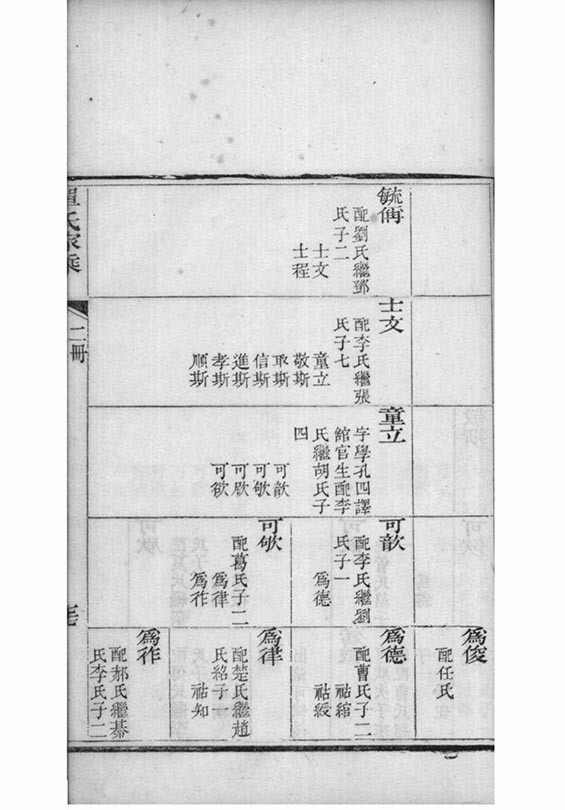 毓儁
配劉氏繼鄧
氏子二
士文
士程
士文
配李氏繼張
氏子七
童立
敬斯
取斯
信斯
進斯
孝斯
順斯
童立
字學孔四譯
館官生配李
氏繼胡氏子
四
可歆
可敬
可欣
可欲
可歆
配李氏繼劉
氏子一
爲德
可敬
配葛氏子二
爲律
爲作
爲俊
配任氏
爲德
配曹氏子二
祜綰
祜綏
爲律
配楚氏繼趙
氏紹子一
祜知
爲作
配郝氏繼綦
氏李氏子二
氏家乘
二冊